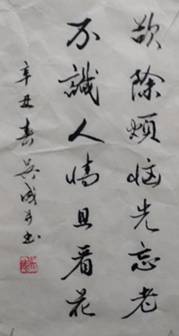 欲除煩惱先忘老
不識人情且看花
辛丑春吳成書